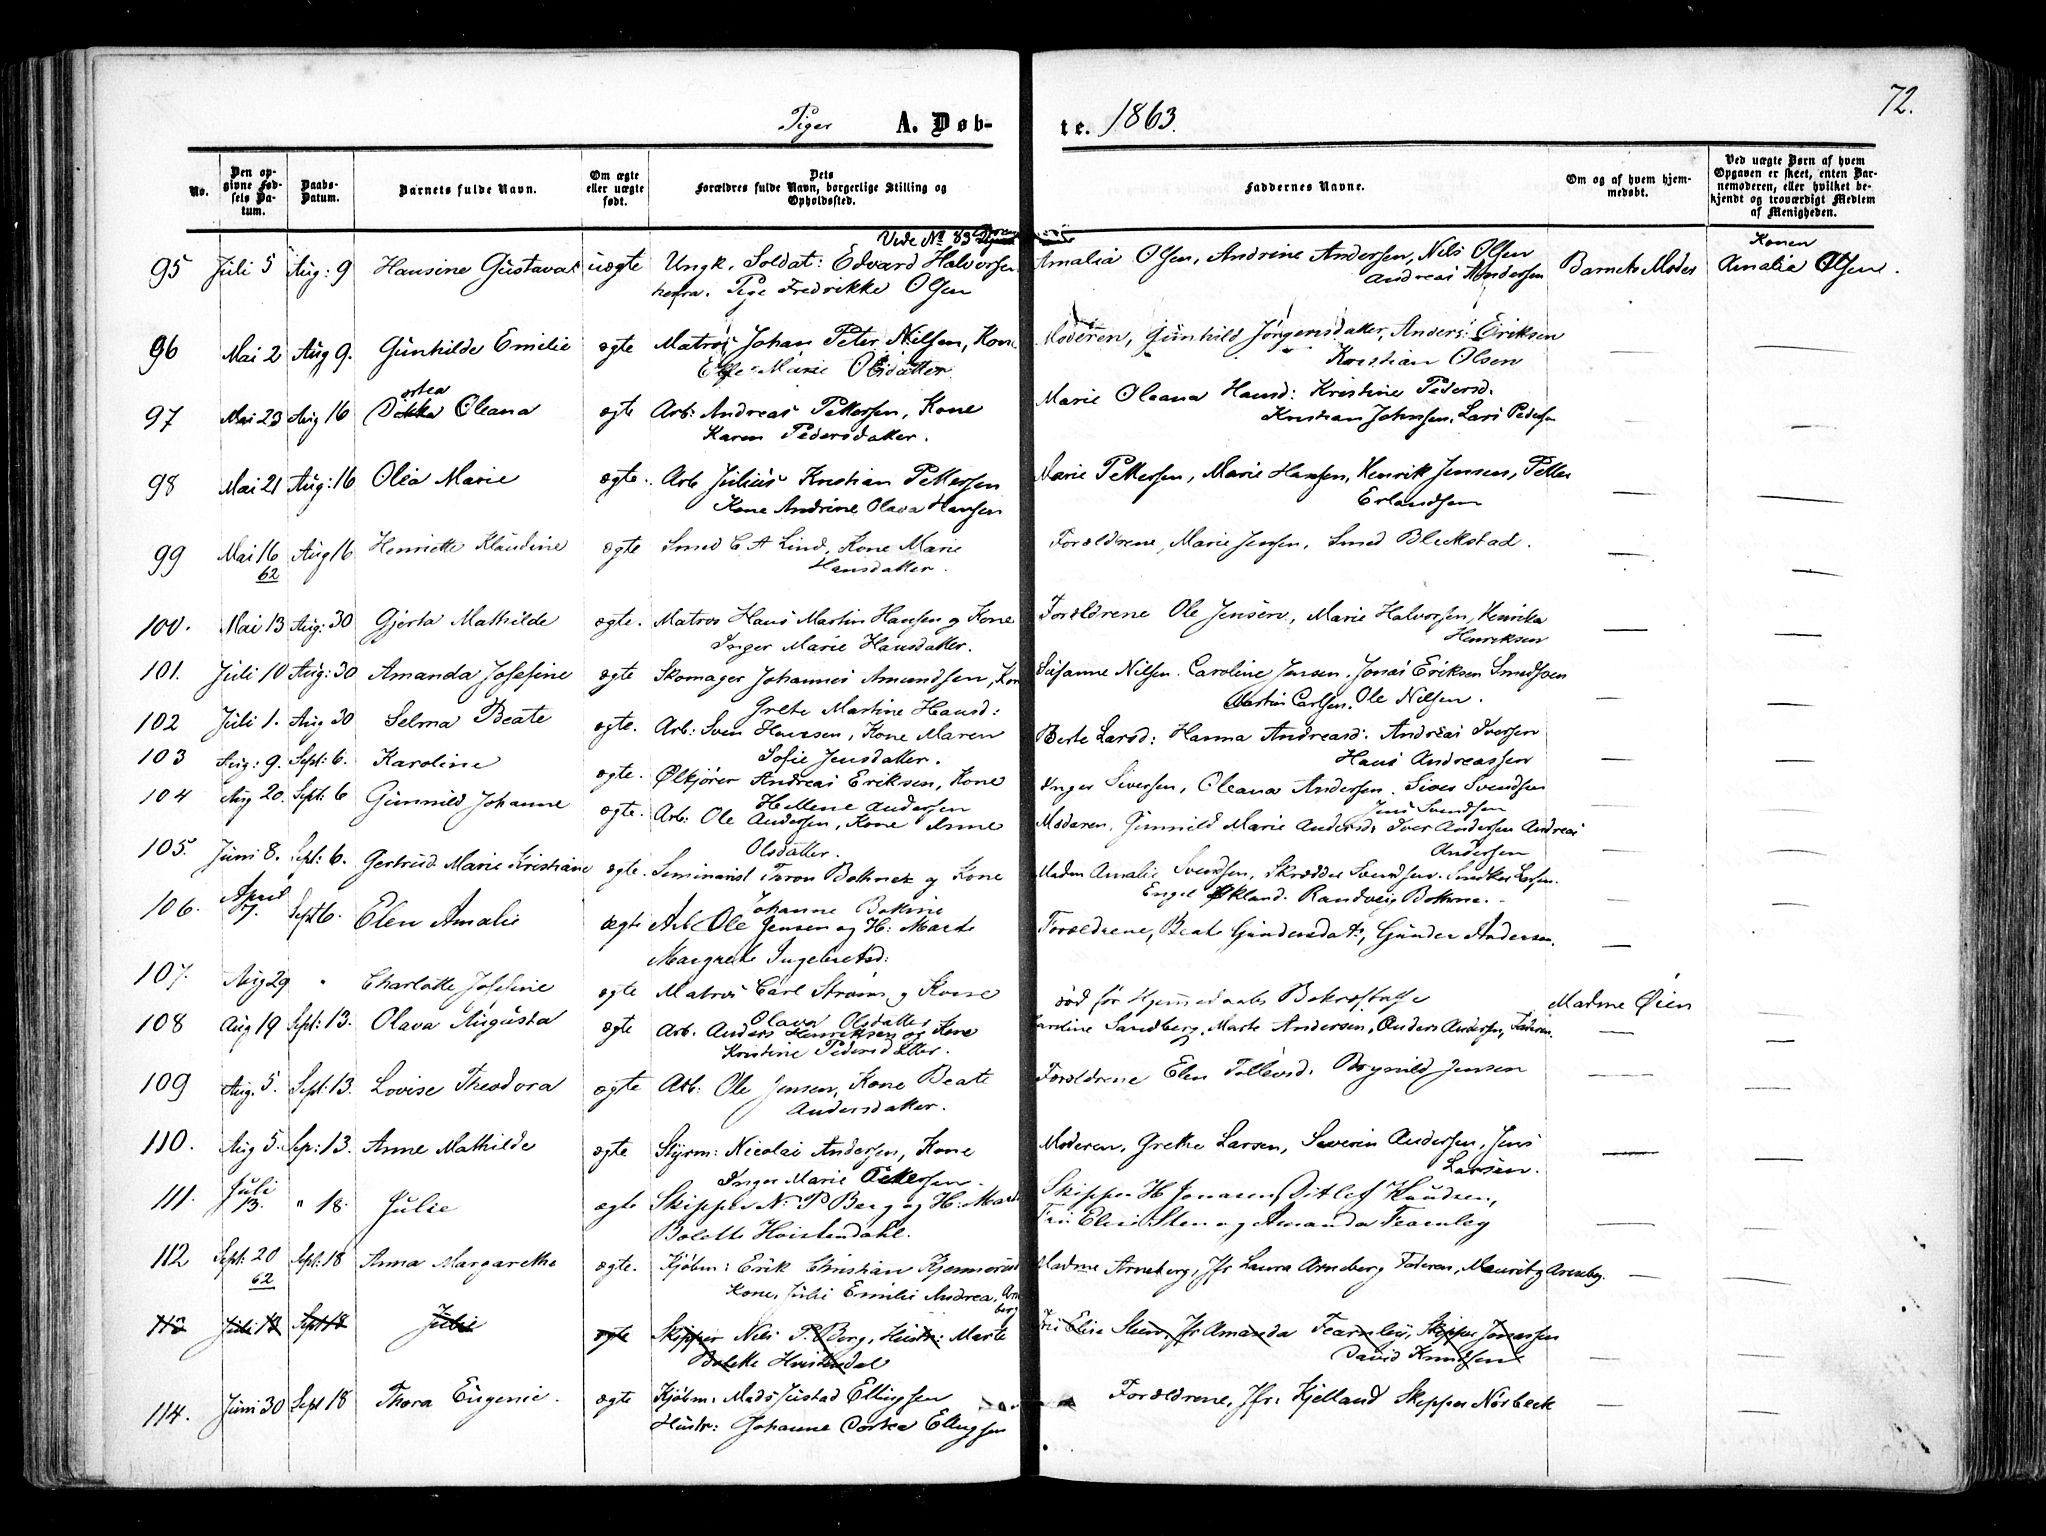 72.
Piger A. Døb- te. 1863.
No. | Den opgivne Fødsels Datum. | Daabs-Datum. | Barnets fulde Navn. | Om ægte eller uægte født. | Dets Forældres fulde Navn, borgerlige Stilling og Opholdssted. | Faddernes Navne. | Om og af hvem hjemmedøbt. | Ved uægte Børn af hvem Opgaven er skeet, enten Barnemoderen, eller hvilket bekjendt og troværdigt Medlem af Menigheden.
Vide No 83
Konen
95 Juli 5 Aug: 9 Hansine Gustava uægte Ungk. Soldat: Edvard Halvorsen Amalia Olsen, Andrine Andersen, Nils Olsen Barnets Moder Amalia Olsen.
Pige Fredrikke Olsen Andreas Andersen
96 Mai 2 Aug 9. Gunhilde Emilie ægte Matros Johan Peter Nilsen, Kone Moderen, Gunhild Jørgensdatter, Anders Eriksen
Else Marie Olsdatter Kristian Olsen
97 Mai 23 Aug 16 Oleana ægte Arb: Andreas Pettersen, Kone Marie Oleana Hansd: Kristine Pedersd.
Karen Pedersdatter. Kristian Johnsen, Lars Pedersen
98 Mai 21 Aug: 16 Olea Marie ægte. Arb Julius Kristian Pettersen Marie Pettersen, Marie Hansen, Henrik Jensen, Petter
Kone Andrine Olava Hansen Erlandsen
99 Mai 16 Aug 16 Henriette Klaudine ægte Smed C A Lind, Kone Marie Forældrene, Marie Jensen, Smed Blekstad.
62 Hansdatter.
100. Mai 13 Aug: 30 Gjerta Mathilde ægte. Matros Hans Martin Hansen og Kone Forældrene Ole Jensen, Marie Halvorsen, Henrika
Inger Marie Hansdatter. Henriksen
101. Juli 10 Aug: 30 Amanda Josefine ægte Skomager Johannes Amundsen, Kone Susanne Nilsen. Caroline Jensen. Jonas Eriksen
Grete Martine Hansd: Martin Carlsen. Ole Nilsen.
102 Juli 1. Aug 30 Selma Beate ægte. Arb: Sven Hansen, Kone Maren Berte Larsd: Hanna Andreasd: Andreas Iversen
Sofie Jensdatter. Hans Andreassen
103 Aug: 9. Sept: 6. Karoline ægte. Ølkjører Andreas Eriksen, Kone Inger Siversen, Oleana Andersen. Siver Svendsen
Hellene Andersen Jens Svendsen
104 Aug 20. Sept: 6 Gunnild Johanne ægte. Arb: Ole Andersen, Kone Anne Moderen, Gunnild Marie Andersd: Iver Andersen Andreas
Olsdatter. Andersen
105. Juni 8. Sept: 6. Gertrud Marie Kristiane ægte. Seminarist og Kone Madm Amalie Svendsen, Skrædder Svendsen.
Johanne
106. April 7. Sept 6. Elen Amalie ægte Arb Ole Jensen og H: Marte Forældrene, Beate Gundersdatr, Gunder Andersen.
Margrete Ingebretsd:
107. Aug 29 " Charlotte Josefine ægte Matros Carl Strøm og Kone død før Madme Øien
Olava Olsdatter
108 Aug 19 Sept: 13. Olava Augusta ægte Arb. Anders Henriksen og Kone Karoline Sandberg, Marte Andersen, Anders Andersen, Faderen.
Kristine Pedersdatter.
109 Aug. 5. Sept: 13. Lovise Theodora ægte Arb: Ole Jensen, Kone Beate Forældrene Elen Tollevsd. Brynild Jensen
Andersdatter.
110. Aug 5. Sep: 13. Anne Mathilde ægte Styrm: Nicolai Andersen, Kone Moderen, Grethe Larsen, Severin Andersen, Jens
Inger Marie Pettersen. Larsen.
111. Juli 13. " 18. Julie ægte Skipper N. P Berg og H: Marte Skipper H Jonasen, Ditlef Knudsen,
Bolette Hvistendahl. Fru Elise Sten og Amanda Fearnley
112 Sept: 20 Sept: 18 Anna Margarethe ægte. Kjøbm: Erik Christian Madme Arneberg, Jfr Laura Arneberg Faderen, Mauritz Arneberg.
62 Kone, Julie Emilie Andrea Arneberg
113 Juli 13 Sept 18 Julie ægte Skipper Nils P. Berg, Hustr: Marte Fru Elise Steen, Jfr Amanda Fearnley, Skipper Jonassen
Bolette Hvistendal David Knudsen
114. Juni 30 Sept 18 Thora Eugenie. ægte Kjøbm: Mads Justad Ellingsen Forældrene, Jfr: Kjelland Skipper Norbeck
Hustr: Johanne Dorthea Ellingsen